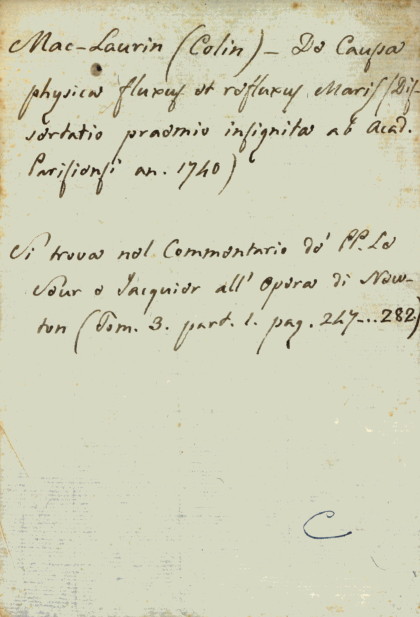 Mac-Laurin (Colin) - De Causa
physica fluxus et refluxus Maris (Dis-
sertatio praemio insignita ab Acad.
Parisiensi an. 1740)
Si trova nel Commentario de' PP. Le
Seur e Jacquier all' Opera di New-
ton (Tom. 3. part. 1. pag. 247...282)
C